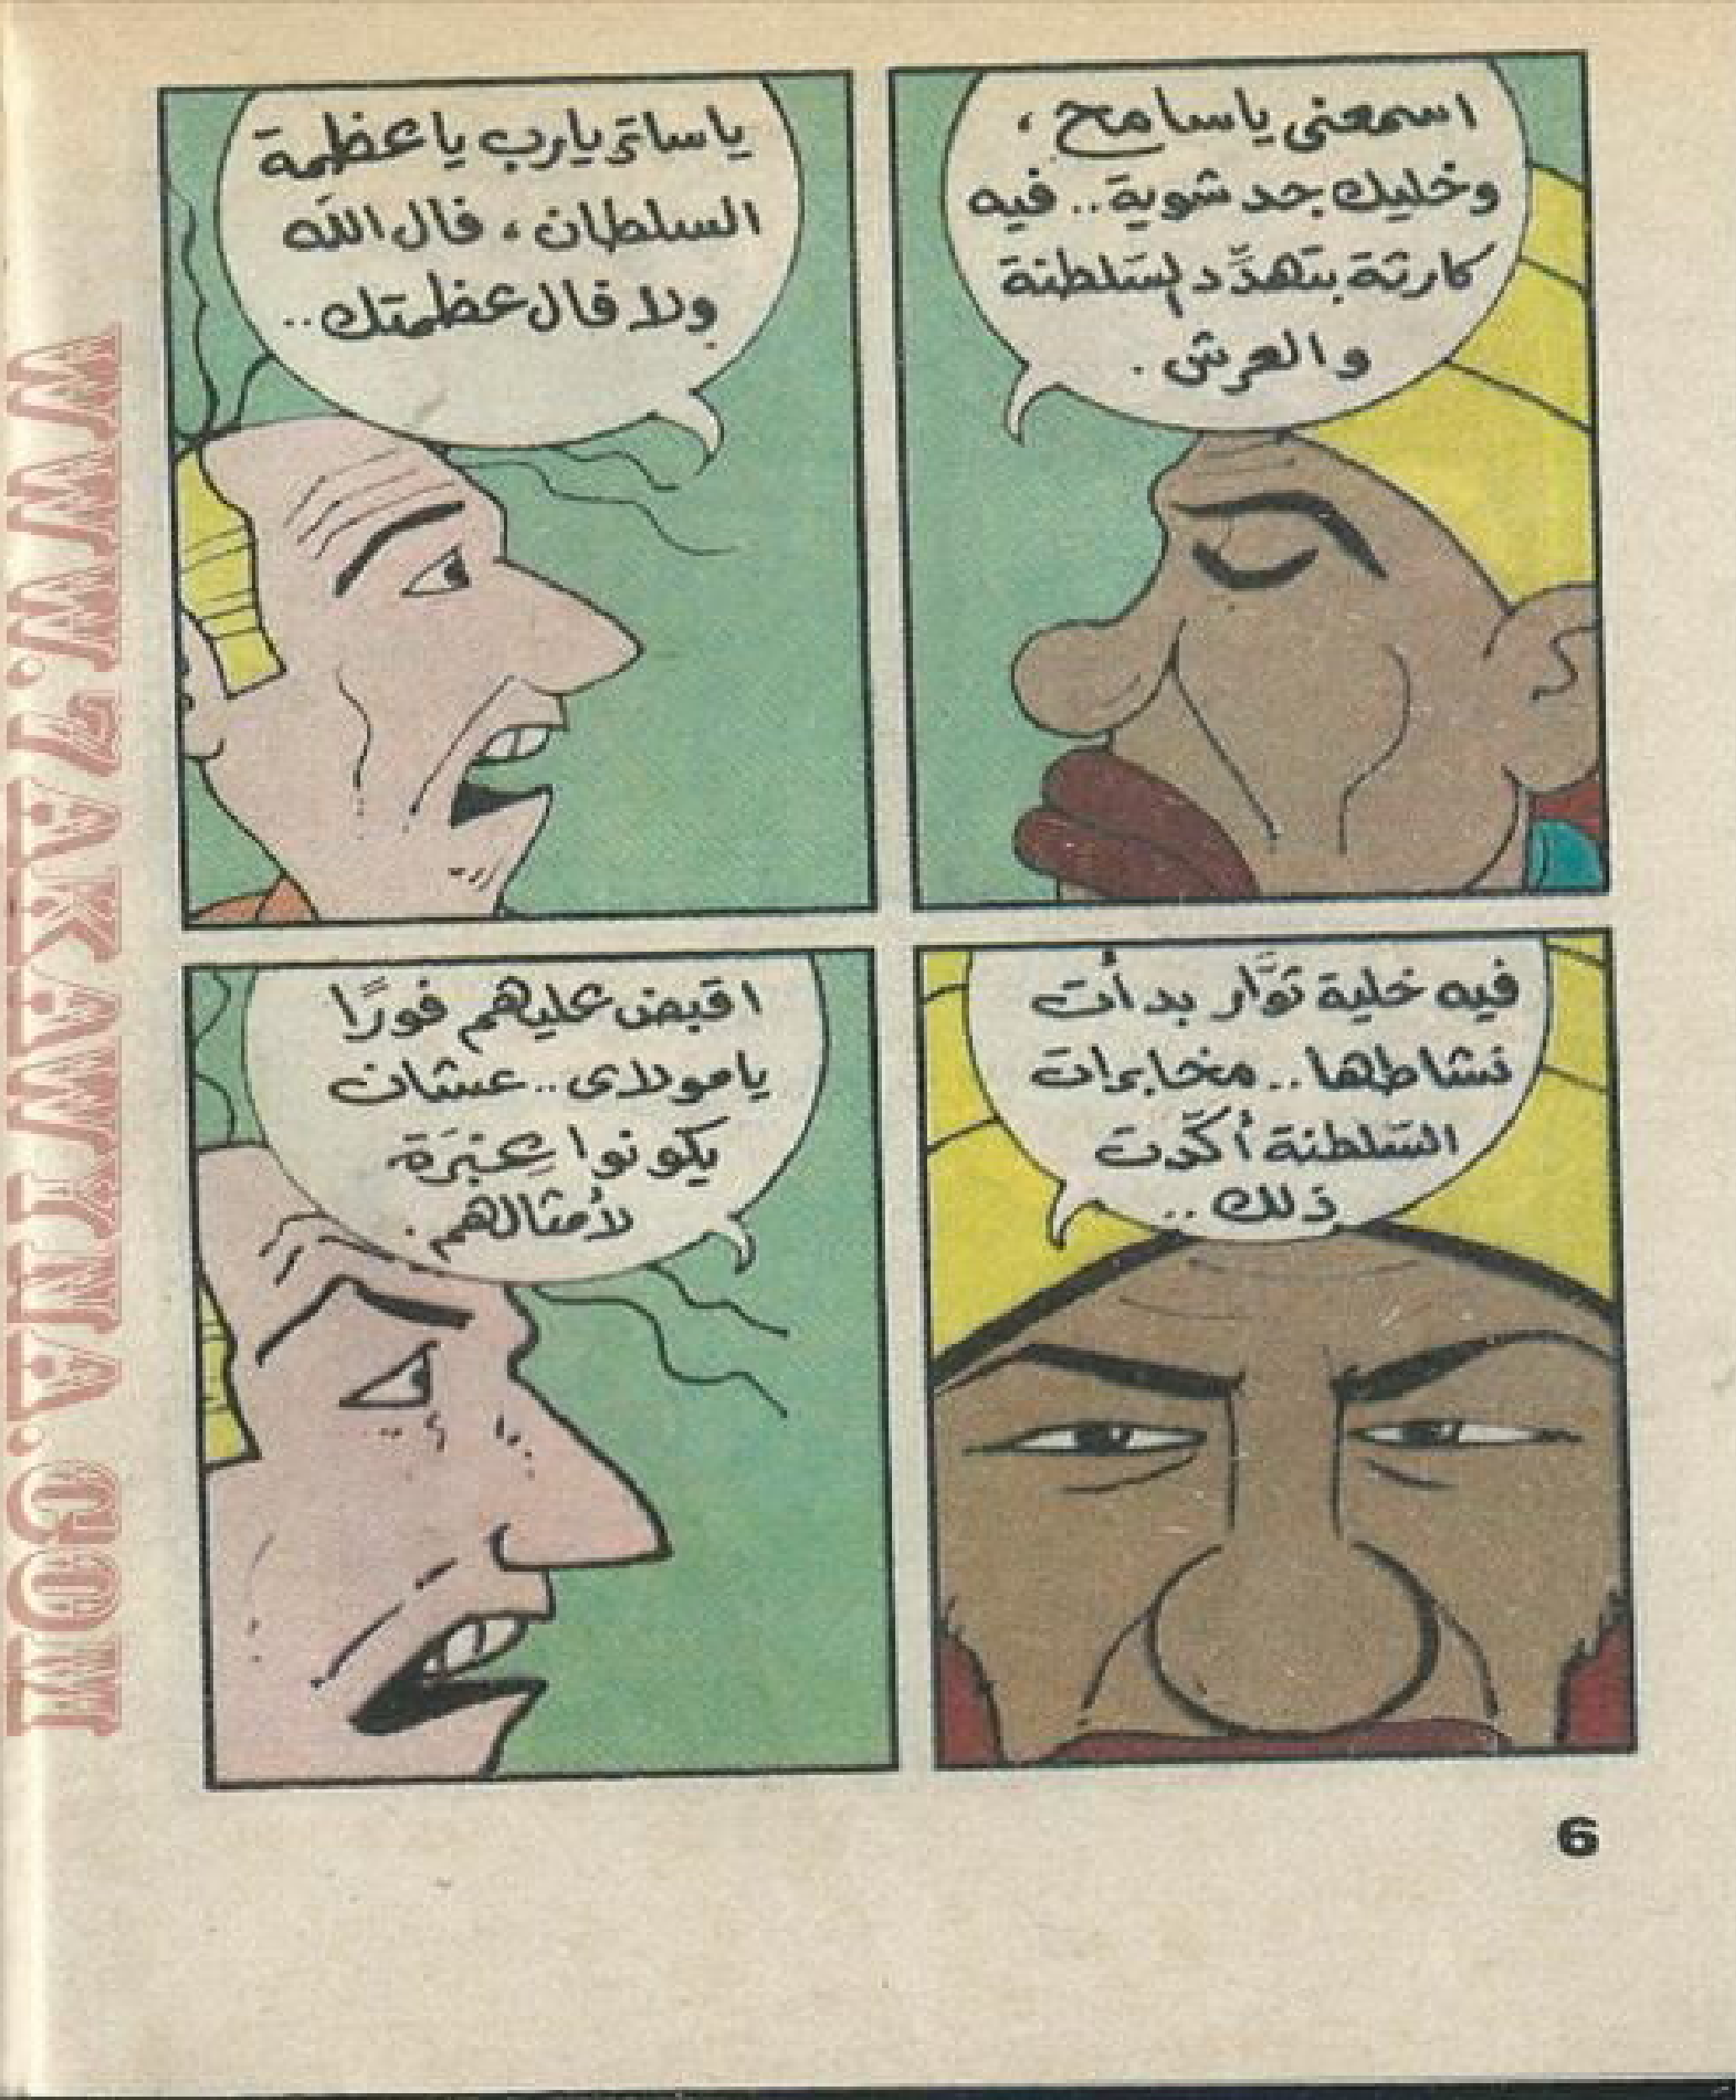 اسمعنى ياسامح ،
وخليك جد شوية.. فيه
كارثة بتهدّد السّلطنة
والعرش .
ياساتر يارب ياعظمة
السلطان ، فال الله
ولا فال عظمتك..
فيه خلية ثوَّار بدأت
نشاطها.. مخابرات
السّلطنة أكّدت
ذلك ..
اقبض عليهم فورًا
يامولاى.. عشان
يكونوا عِبَرَة
لأمثالهم .
6
WWW.7AKAWITNA.COM